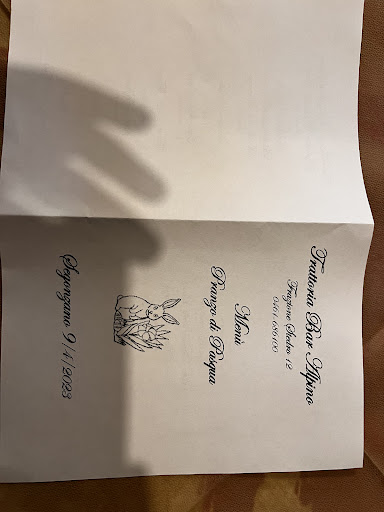 Trattoria Bar Alpino
Frazione Stedro 12
0461-686100
Menù
Pranzo di Pasqua
Segonzano 9/4/2023